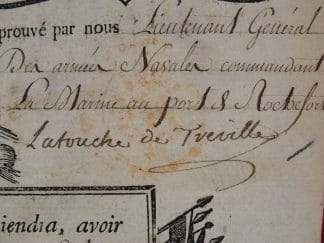 prouvé par nous Lieutenant Général
Des armées Navales commandant
La Marine au port de Rochefort
Latouche de Treville
iendra, avoir